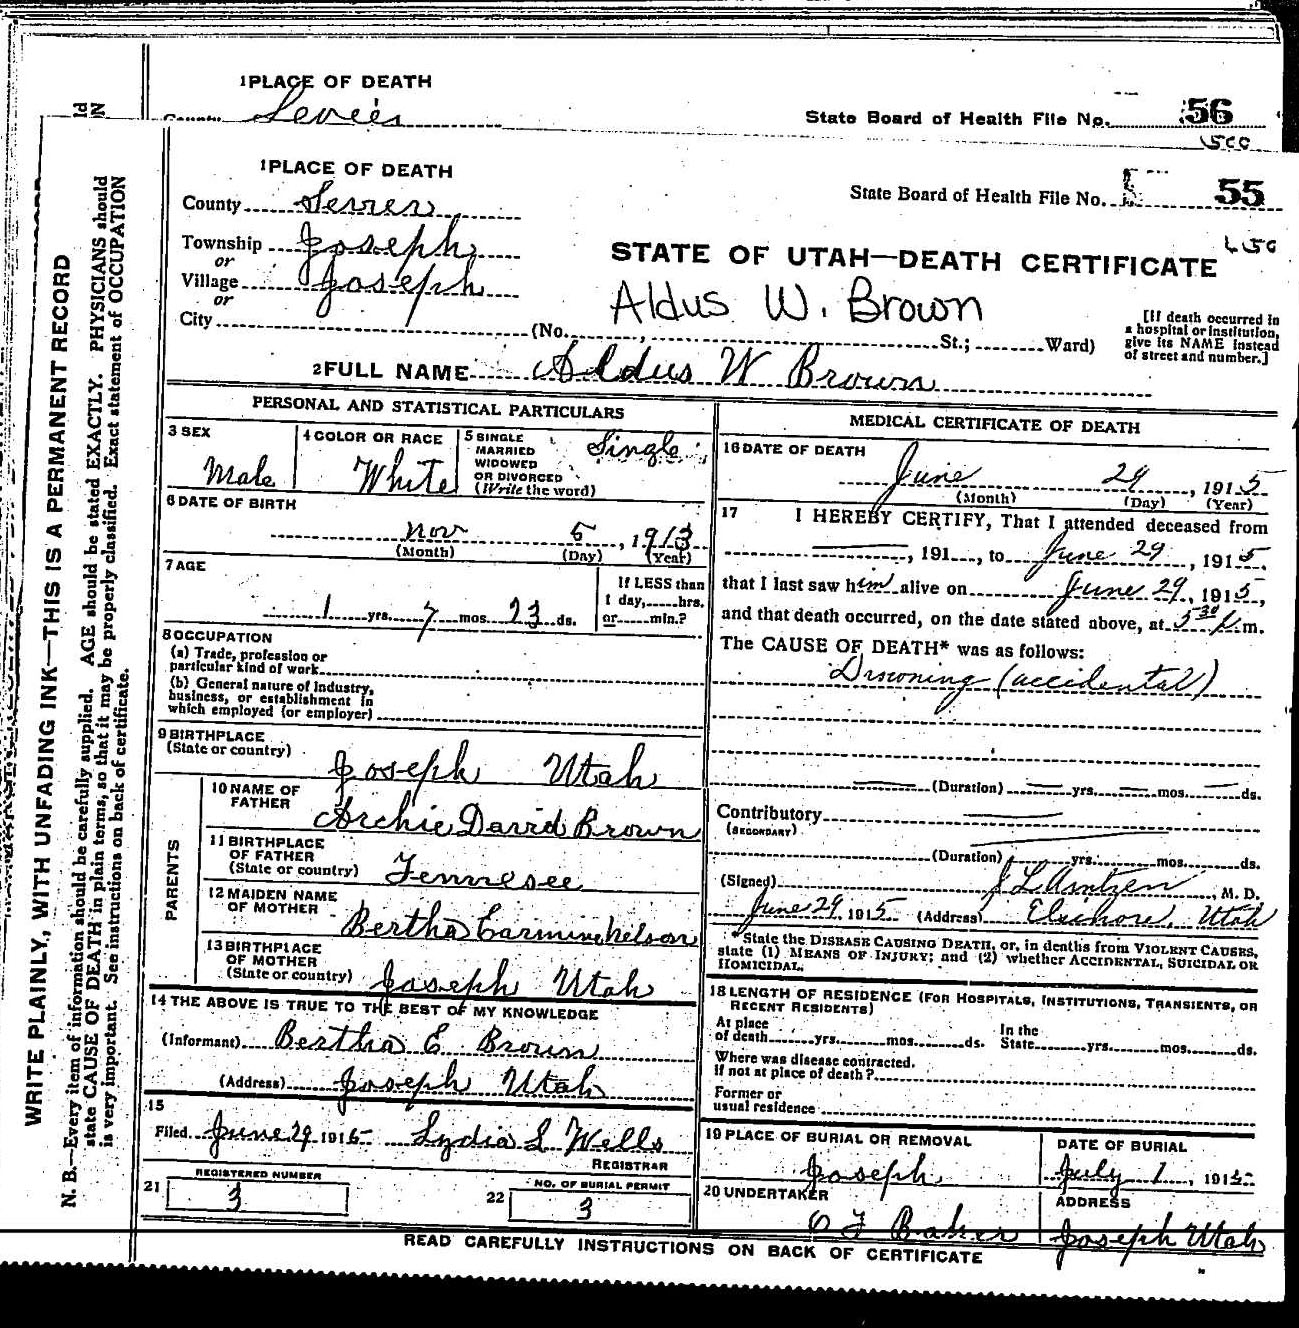 1 PLACE OF DEATH
County Sevier
State Board of Health File No. 56
1 PLACE OF DEATH
State Board of Health File No. 55
County Sevier
Township Joseph
or
Village Joseph
or
City
STATE OF UTAH—DEATH CERTIFICATE
Aldus W. Brown
(No. St.; Ward)
[If death occurred in
a hospital or institution,
give its NAME instead
of street and number.]
2 FULL NAME Aldus W Brown
PERSONAL AND STATISTICAL PARTICULARS
3 SEX
Male
4 COLOR OR RACE
White
5 SINGLE
MARRIED
WIDOWED
OR DIVORCED
(Write the word)
Single
6 DATE OF BIRTH
Nov 5, 1913
(Month) (Day) (Year)
7 AGE
1 yrs. 7 mos. 23 ds.
If LESS than
1 day, hrs.
or min.?
8 OCCUPATION
(a) Trade, profession or
particular kind of work
(b) General nature of Industry,
business, or establishment in
which employed (or employer)
9 BIRTHPLACE
(State or country)
Joseph Utah
PARENTS
10 NAME OF
FATHER
Archie David Brown
11 BIRTHPLACE
OF FATHER
(State or country)
Tennesee
12 MAIDEN NAME
OF MOTHER
Bertha
13 BIRTHPLACE
OF MOTHER
(State or country)
Joseph Utah
14 THE ABOVE IS TRUE TO THE BEST OF MY KNOWLEDGE
(Informant) Bertha E Brown
(Address) Joseph Utah
15
Filed June 29 1915 Lydia L Wells
REGISTRAR
21
REGISTERED NUMBER
3
22
NO. OF BURIAL PERMIT
3
MEDICAL CERTIFICATE OF DEATH
16 DATE OF DEATH
June 29, 1915
(Month) (Day) (Year)
17 I HEREBY CERTIFY, That I attended deceased from
, 191 , to June 29, 1915.
that I last saw him alive on June 29, 1915,
and that death occurred, on the date stated above, at 5 30 P m.
The CAUSE OF DEATH* was as follows:
Drowning (accidental)
(Duration) yrs. mos. ds.
Contributory
(SECONDARY)
(Duration) yrs. mos. ds.
(Signed) J L M. D.
June 29 1915 (Address) Elsinore, Utah
*State the DISEASE CAUSING DEATH, or, in deaths from VIOLENT CAUSES,
state (1) MEANS OF INJURY; and (2) whether ACCIDENTAL, SUICIDAL OR
HOMICIDAL.
18 LENGTH OF RESIDENCE (FOR HOSPITALS, INSTITUTIONS, TRANSIENTS, OR
RECENT RESIDENTS)
At place
of death yrs. mos. ds.
In the
State yrs. mos. ds.
Where was disease contracted,
if not at place of death?
Former or
usual residence
19 PLACE OF BURIAL OR REMOVAL
Joseph
DATE OF BURIAL
July 1, 1915
20 UNDERTAKER
Baker
ADDRESS
Joseph Utah
READ CAREFULLY INSTRUCTIONS ON BACK OF CERTIFICATE
WRITE PLAINLY, WITH UNFADING INK—THIS IS A PERMANENT RECORD
N. B.—Every item of information should be carefully supplied. AGE should be stated EXACTLY. PHYSICIANS should
state CAUSE OF DEATH in plain terms, so that it may be properly classified. Exact statement of OCCUPATION
is very important. See instructions on back of certificate.